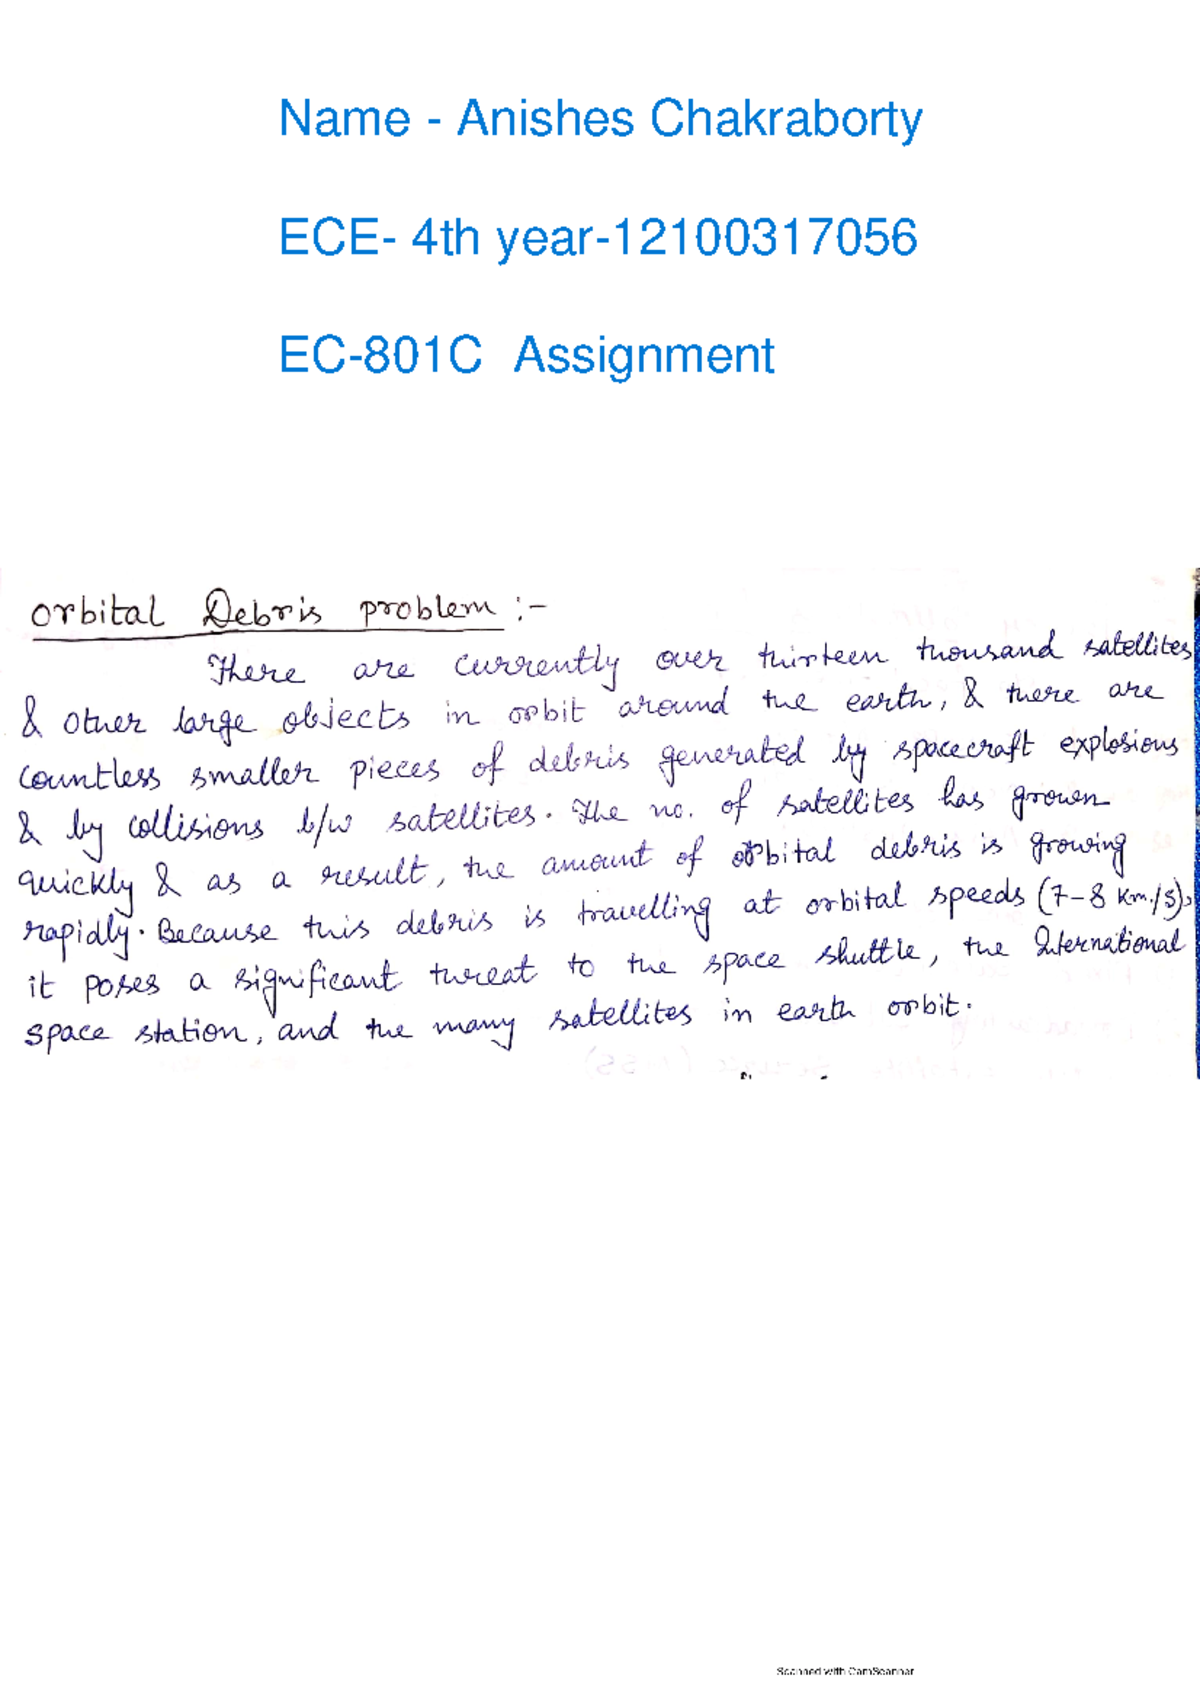 Name - Anishes Chakraborty
ECE- 4th year-12100317056
EC-801C Assignment
orbital Debris problem :-
There are currently over thirteen thousand satellites
& other large objects in orbit around the earth, & there are
countless smaller pieces of debris generated by spacecraft explosions
& by collisions b/w satellites. The no. of satellites has grown
quickly & as a result, the amount of orbital debris is growing
rapidly. Because this debris is travelling at orbital speeds (7-8 km./s),
it poses a significant threat to the space shuttle, the International
space station, and the many satellites in earth orbit.
Scanned with CamScanner